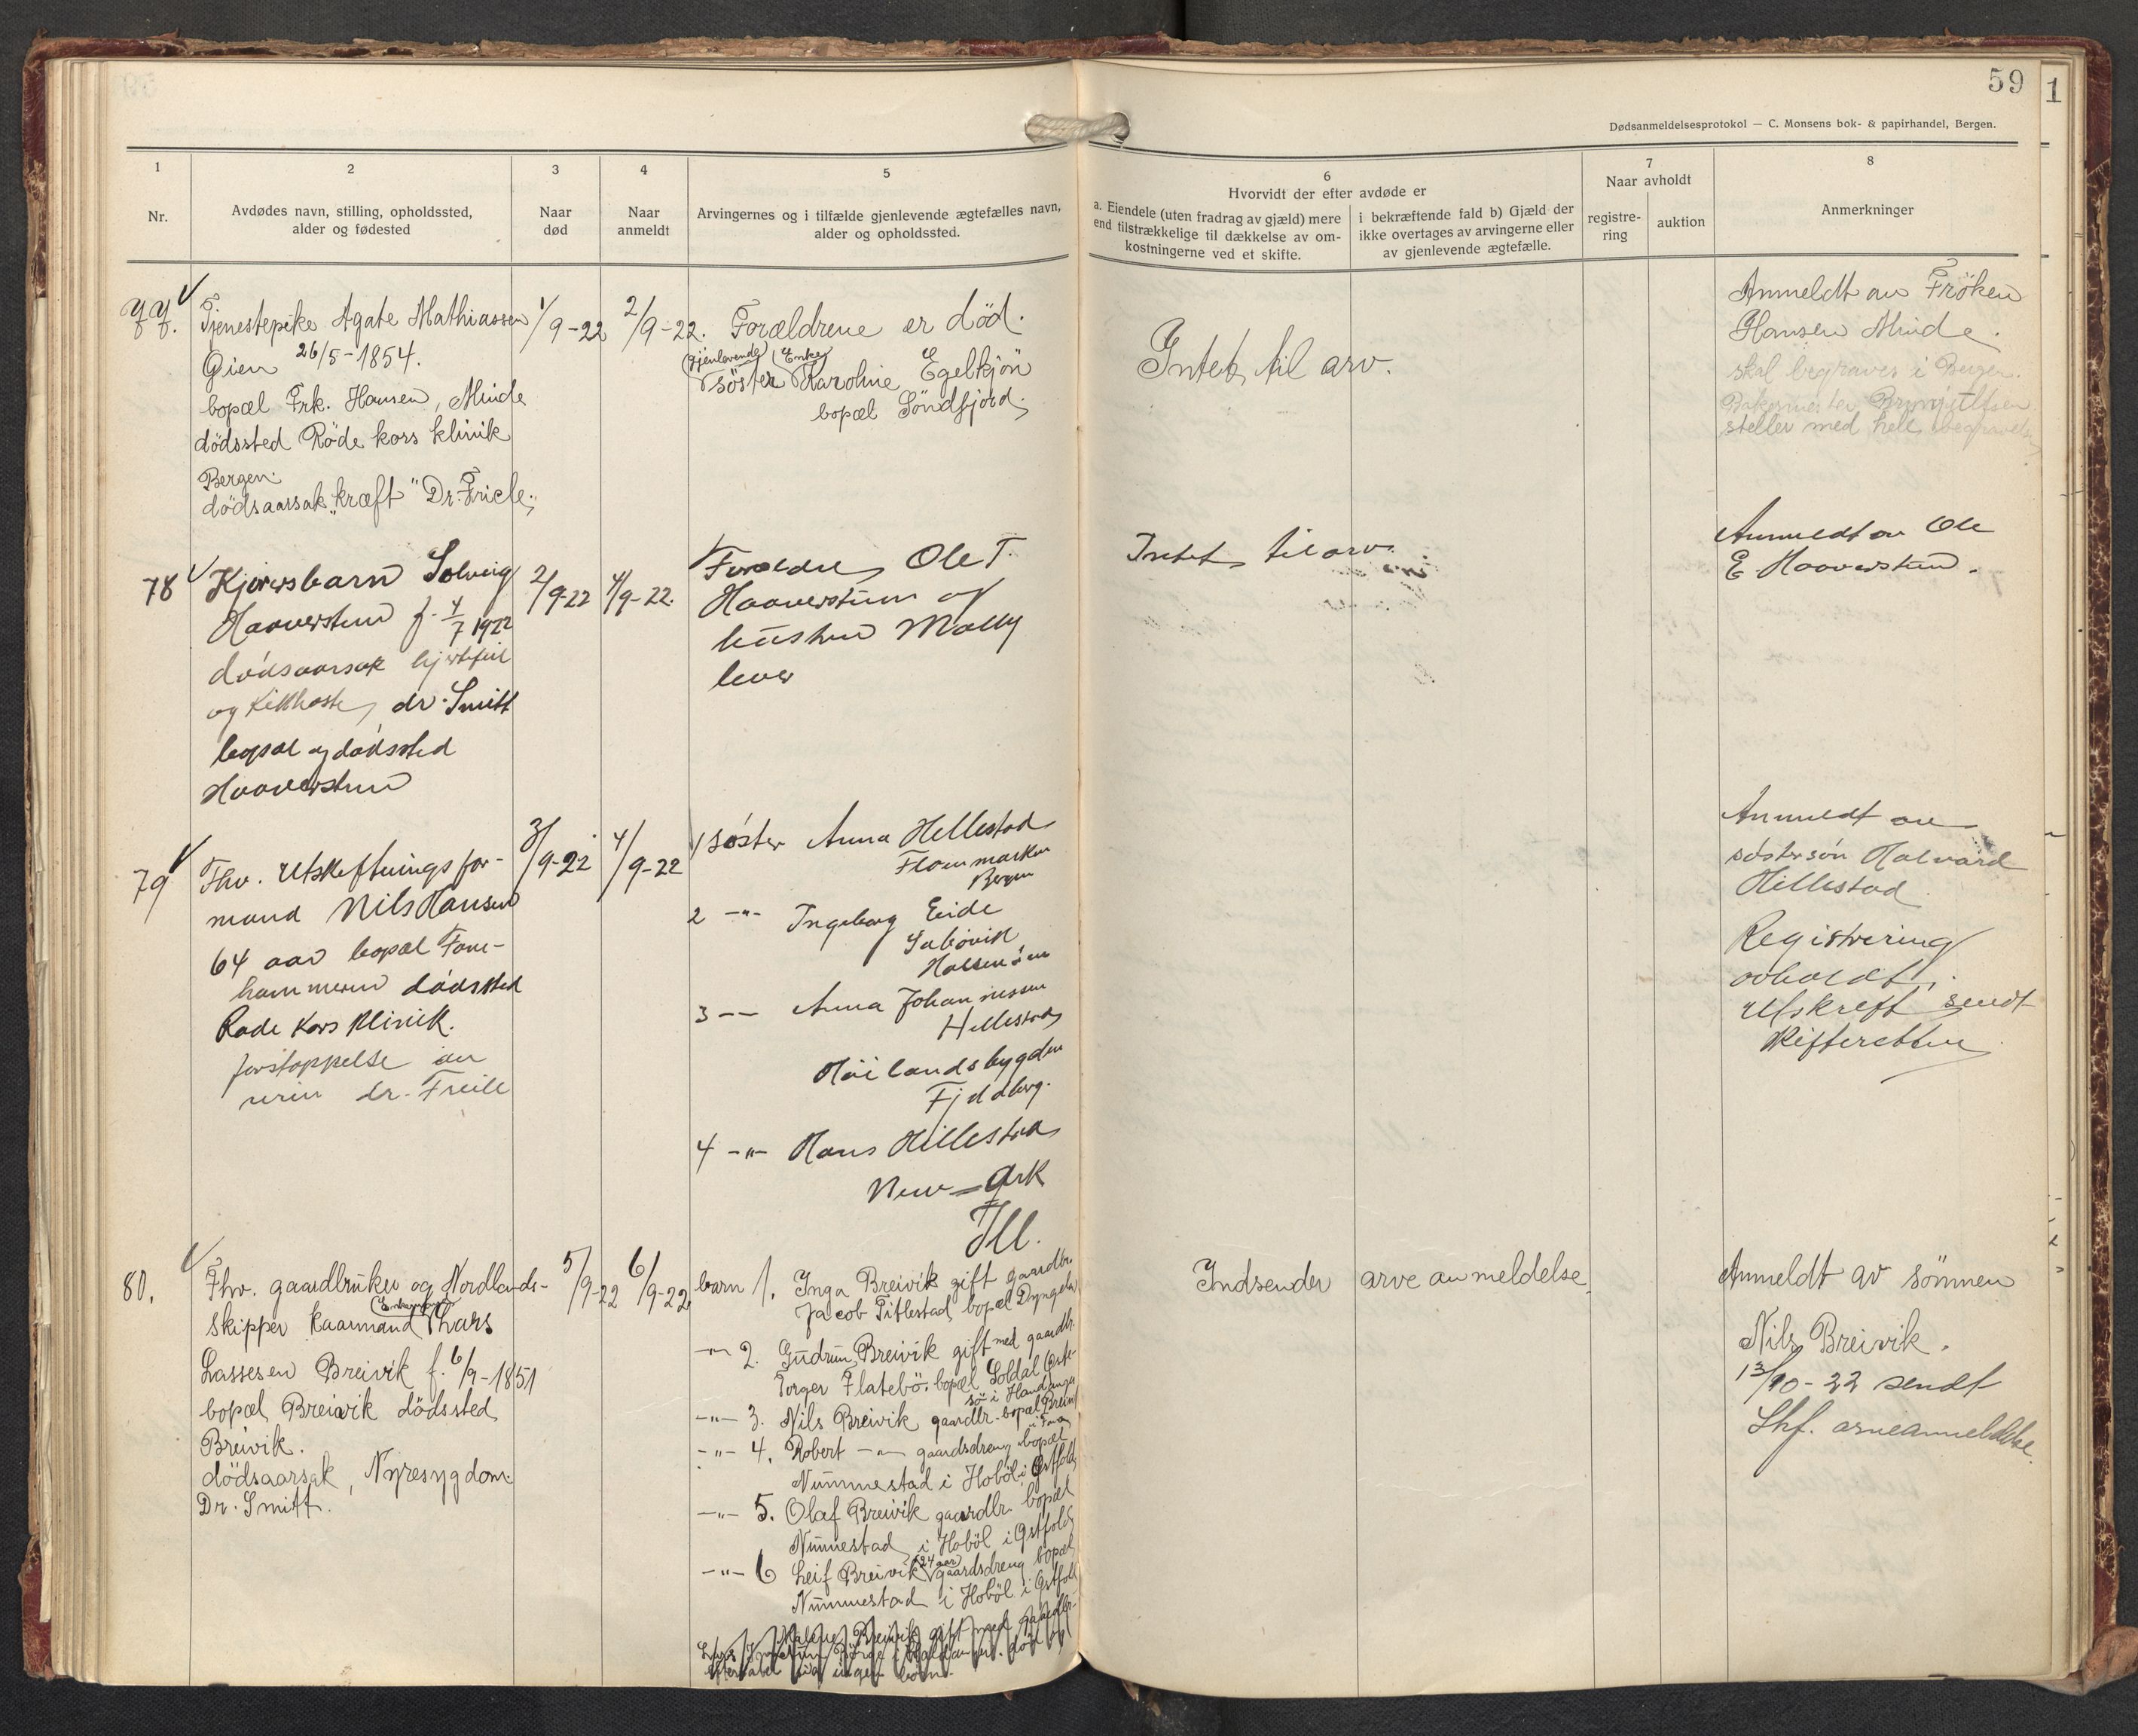 59
1
Dødsanmeldelsesprotokol — C. Monsens bok- & papirhandel, Bergen.
1
Nr.
2
Avdødes navn, stilling, opholdssted,
alder og fødested
3
Naar
død
4
Naar
anmeldt
5
Arvingernes og i tilfælde gjenlevende ægtefælles navn,
alder og opholdssted.
6
Hvorvidt der efter avdøde er
a. Eiendele (uten fradrag av gjæld) mere
end tilstrækkelige til dækkelse av om-
kostningerne ved et skifte.
i bekræftende fald b) Gjæld der
ikke overtages av arvingerne eller
av gjenlevende ægtefælle.
7
Naar avholdt
registre-
ring
auktion
8
Anmerkninger
77.
Tjenestepike Agate Mathiassen
Øien 26/5-1854.
bopæl Frk. Hansen, Minde
dödssted Röde kors klinik
Bergen.
dödsaarsak „kræft" Dr.
1/9-22
2/9-22.
Forældrene er död.
(gjenlevende) (Enke)
söster Karoline Egelkjön
bopæl Söndfjord.
Intet til arv.
Anmeldt av Fröken
Hansen Minde.
skal begraves i Bergen.
steller med hele begravelsen
78
Solveig
Haaverstun f. 4/7 1922
dödsaarsak hjertefeil
og Kikhoste, dr. Smitt
bopæl og dödssted
Haaverstun
2/9-22
4/9-22.
Forældre Ole T.
Haaverstun og
hustru Molly
lever
Intet til arv.
Anmeldt av Ole
E. Haaverstun.
79
Fhv. Utskiftningsfor-
mand Nils Hansen
64 aar bopæl Fane-
hammeren dödssted
Röde Kors Klinik.
forstoppelse av
urin dr.
3/9-22
4/9-22
1 söster Anna Hellestad
Bergen
2 -"- Ingeborg Eide
3 -"- Anna Johannessen
Hellestad
Fjeldberg.
4 -"- Hans Hillestad
New-York
Anmeldt av
söstersön Halvard
Hillestad
Registrering
avholdt.
Utskrift sendt
skifteretten
80.
Fhv. gaardbruker og Nordlands-
skipper kaarmand (Enkemand) Lars
Lassesen Breivik f. 6/9-1851
bopæl Breivik dödssted
Breivik.
dödsaarsak, Nyresygdom.
Dr. Smitt.
5/9-22
6/9-22
barn 1. Inga Breivik gift gaardbr.
Jacob Titlestad bopæl
-"- 2. Gudrun Breivik gift med gaardbr.
Torger Flatebö. bopæl
-"- 3. Nils Breivik gaardbr. bopæl Breivik
i Fana
-"- 4. Robert -"- gaardsdreng bopæl
Nummestad i Hoböl i Østfold
-"- 5. Olaf Breivik gaardbr. bopæl
Nummestad i Hoböl i Østfold
-"- 6 Leif Breivik (24 aar) gaardsdreng bopæl
Nummestad i Hoböl i Østfold
Indsender arveanmeldelse.
Anmeldt av sönnen
Nils Breivik.
13/10-22 sendt
Skf. arveanmeldelse.